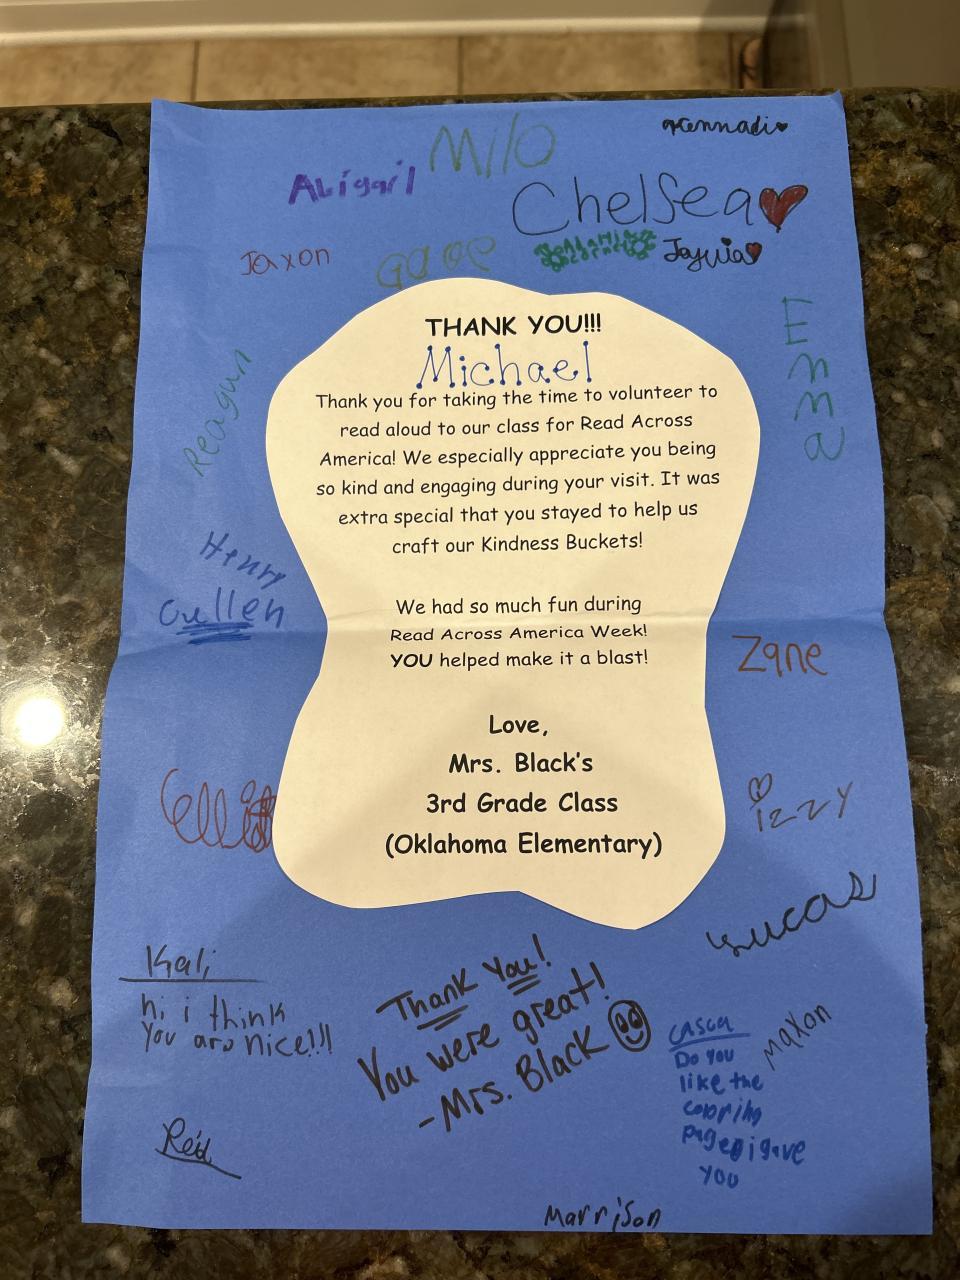 Milo
Abigail
Chelsea
Jaxon
Gage
THANK YOU!!!
Michael
Thank you for taking the time to volunteer to
read aloud to our class for Read Across
America! We especially appreciate you being
so kind and engaging during your visit. It was
extra special that you stayed to help us
craft our Kindness Buckets!
We had so much fun during
Read Across America Week!
YOU helped make it a blast!
Love,
Mrs. Black's
3rd Grade Class
(Oklahoma Elementary)
Emma
Reagun
Henry
Cullen
Zane
izzy
Lucas
Kali
hi i think
You are nice!!!
Thank You!
You were great!
-Mrs. Black
Maxon
Do you
like the
coloring
page i gave
you
Red
Marrison